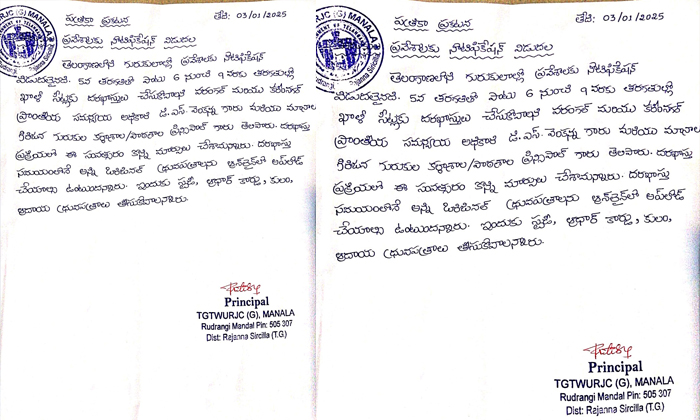 URJC (G) MANALA
తేది: 03/01/2025
పత్రికా ప్రకటన
ప్రవేశాలకు నోటిఫికేషన్ విడుదల
తెలంగాణలోని గురుకులాల్లో ప్రవేశాలకు నోటిఫికేషన్
విడుదలైనది. 5వ తరగతితో పాటు 6 నుంచి 9 వరకు తరగతుల్లో
ఖాళీ సీట్లకు దరఖాస్తులు చేసుకోవాలని వరంగల్ మరియు కరీంనగర్
ప్రాంతీయ సమన్వయ అధికారి డి.ఎస్. వెంకన్న గారు మరియు మానాల
గిరిజన గురుకుల కళాశాల/పాఠశాల ప్రిన్సిపాల్ గారు తెలిపారు. దరఖాస్తు
ప్రక్రియలో ఈ సంవత్సరం కొన్ని మార్పులు చేశామన్నారు. దరఖాస్తు
సమయంలోనే అన్ని ఒరిజినల్ ధ్రువపత్రాలను ఆన్‌లైన్‌లో అప్‌లోడ్
చేయాల్సి ఉంటుందన్నారు. ఇందుకు స్టడీ, ఆధార్ కార్డు, కులం,
ఆదాయ ధ్రువపత్రాలు తీసుకోవాలన్నారు.
Principal
TGTWURJC (G), MANALA
Rudrangi Mandal Pin: 505 307
Dist: Rajanna Sircilla (T.G)
URJC (G) MANALA
తేది: 03/01/2025
పత్రికా ప్రకటన
ప్రవేశాలకు నోటిఫికేషన్ విడుదల
తెలంగాణలోని గురుకులాల్లో ప్రవేశాలకు నోటిఫికేషన్
విడుదలైనది. 5వ తరగతితో పాటు 6 నుంచి 9 వరకు తరగతుల్లో
ఖాళీ సీట్లకు దరఖాస్తులు చేసుకోవాలని వరంగల్ మరియు కరీంనగర్
ప్రాంతీయ సమన్వయ అధికారి డి.ఎస్. వెంకన్న గారు మరియు మానాల
గిరిజన గురుకుల కళాశాల/పాఠశాల ప్రిన్సిపాల్ గారు తెలిపారు. దరఖాస్తు
ప్రక్రియలో ఈ సంవత్సరం కొన్ని మార్పులు చేశామన్నారు. దరఖాస్తు
సమయంలోనే అన్ని ఒరిజినల్ ధ్రువపత్రాలను ఆన్‌లైన్‌లో అప్‌లోడ్
చేయాల్సి ఉంటుందన్నారు. ఇందుకు స్టడీ, ఆధార్ కార్డు, కులం,
ఆదాయ ధ్రువపత్రాలు తీసుకోవాలన్నారు.
Principal
TGTWURJC (G), MANALA
Rudrangi Mandal Pin: 505 307
Dist: Rajanna Sircilla (T.G)